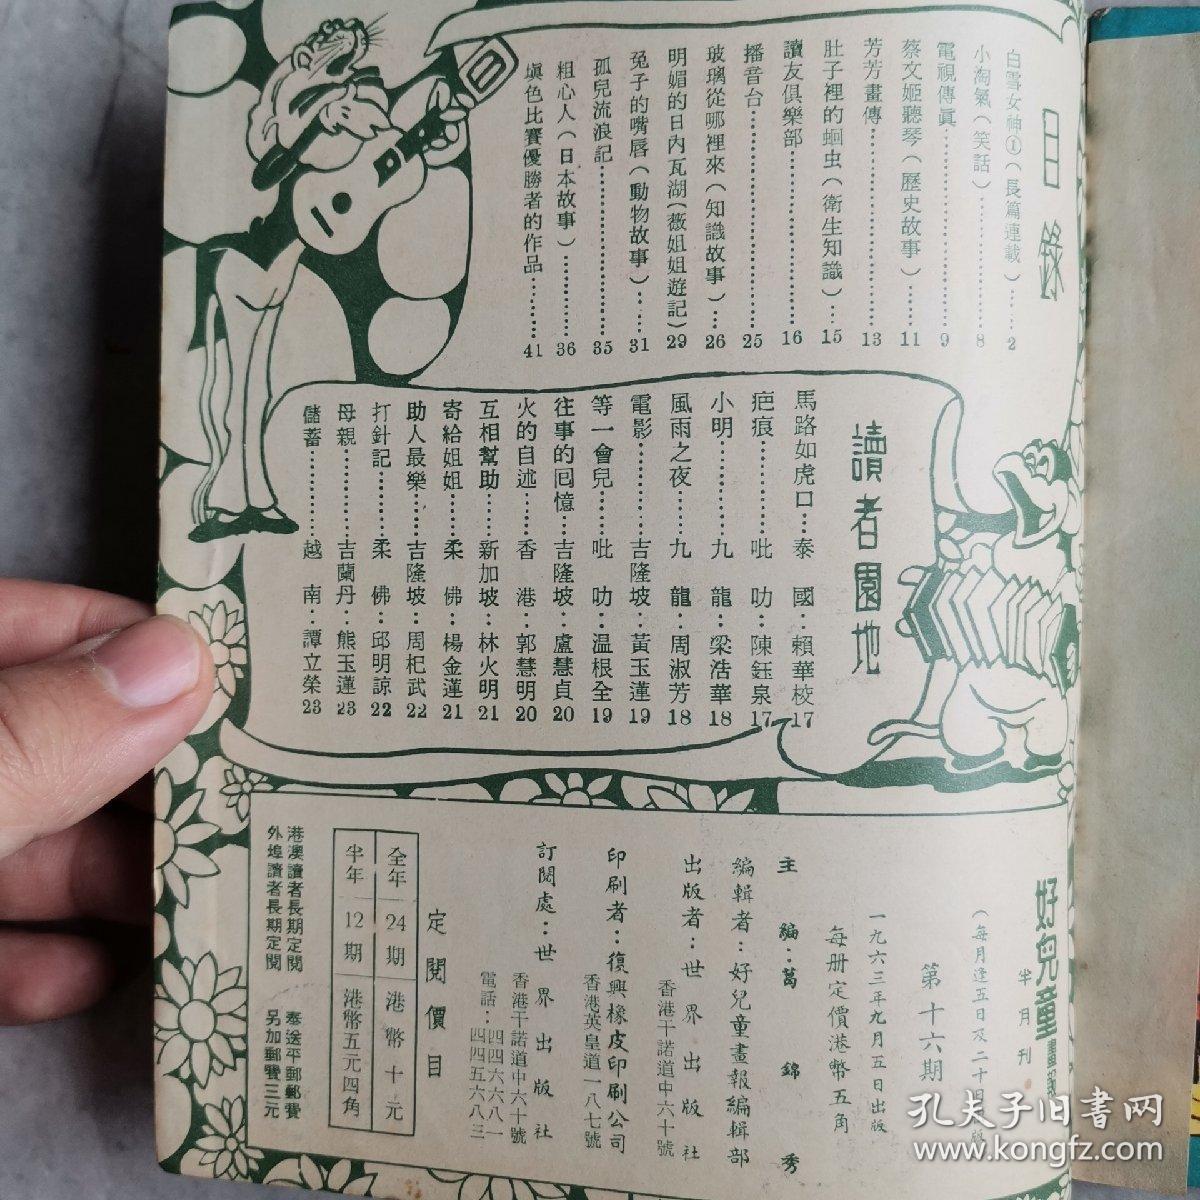 目錄
白雪女神①(長篇連載)……2
小淘氣(笑話)……8
電視傳眞……9
蔡文姬聽琴(歷史故事)……11
芳芳畫傳……13
肚子裡的蛔虫(衛生知識)……15
讀友俱樂部……16
播音台……25
玻璃從哪裡來(知識故事)……26
明媚的日內瓦湖(薇姐姐遊記)29
兔子的嘴唇(動物故事)……31
孤兒流浪記……35
粗心人(日本故事)……36
塡色比賽優勝者的作品……41
讀者園地
馬路如虎口…泰國:賴華校17
疤痕……吡叻:陳鈺泉17
小明……九龍:梁浩華18
風雨之夜……九龍:周淑芳18
電影……吉隆坡:黃玉蓮19
等一會兒……吡叻:温根全19
往事的囘憶…吉隆坡:盧慧貞20
火的自述…香港:郭慧明20
互相幫助…新加坡:林火明21
寄給姐姐…柔佛:楊金蓮21
助人最樂…吉隆坡:周杞武22
打針記……柔佛:邱明諒22
母親……吉蘭丹:熊玉蓮23
儲蓄……越南:譚立榮23
好兒童畫報
半月刊
(每月逢五日及二十日出版
第十六期
一九六三年九月五日出版
每册定價港幣五角
主編:葛錦秀
編輯者:好兒童畫報編輯部
出版者:世界出版社
香港干諾道中六十號
印刷者:復興橡皮印刷公司
香港英皇道一八七號
訂閱處:世界出版社
香港干諾道中六十號
電話:四四六六八一
四四五六八三
定閱價目
全年 24期 港幣十元
半年 12期 港幣五元四角
港澳讀者長期定閱 奉送平郵郵費
外埠讀者長期定閱 另加郵費三元
孔夫子旧书网
www.kongfz.com